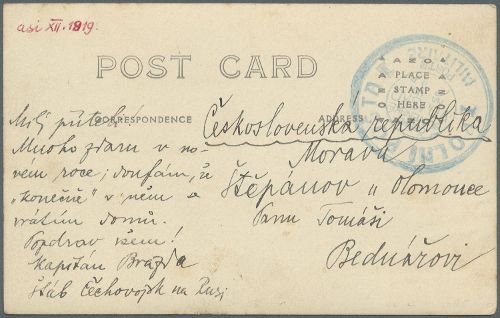 asi XII. 1919.
POST CARD
AZO
PLACE
STAMP
HERE
AZO
CORRESPONDENCE
ADDRESS
Milý příteli!
Mnoho zdaru v no-
vém roce; doufám, že
"konečně" v něm se
vrátím domů.
Pozdrav všem!
Kapitán Brazda
Štáb Čechovojsk na Rusi
Československa republika
Morava
Štěpánov u Olomouce
Panu Tomáši
Bednářovi